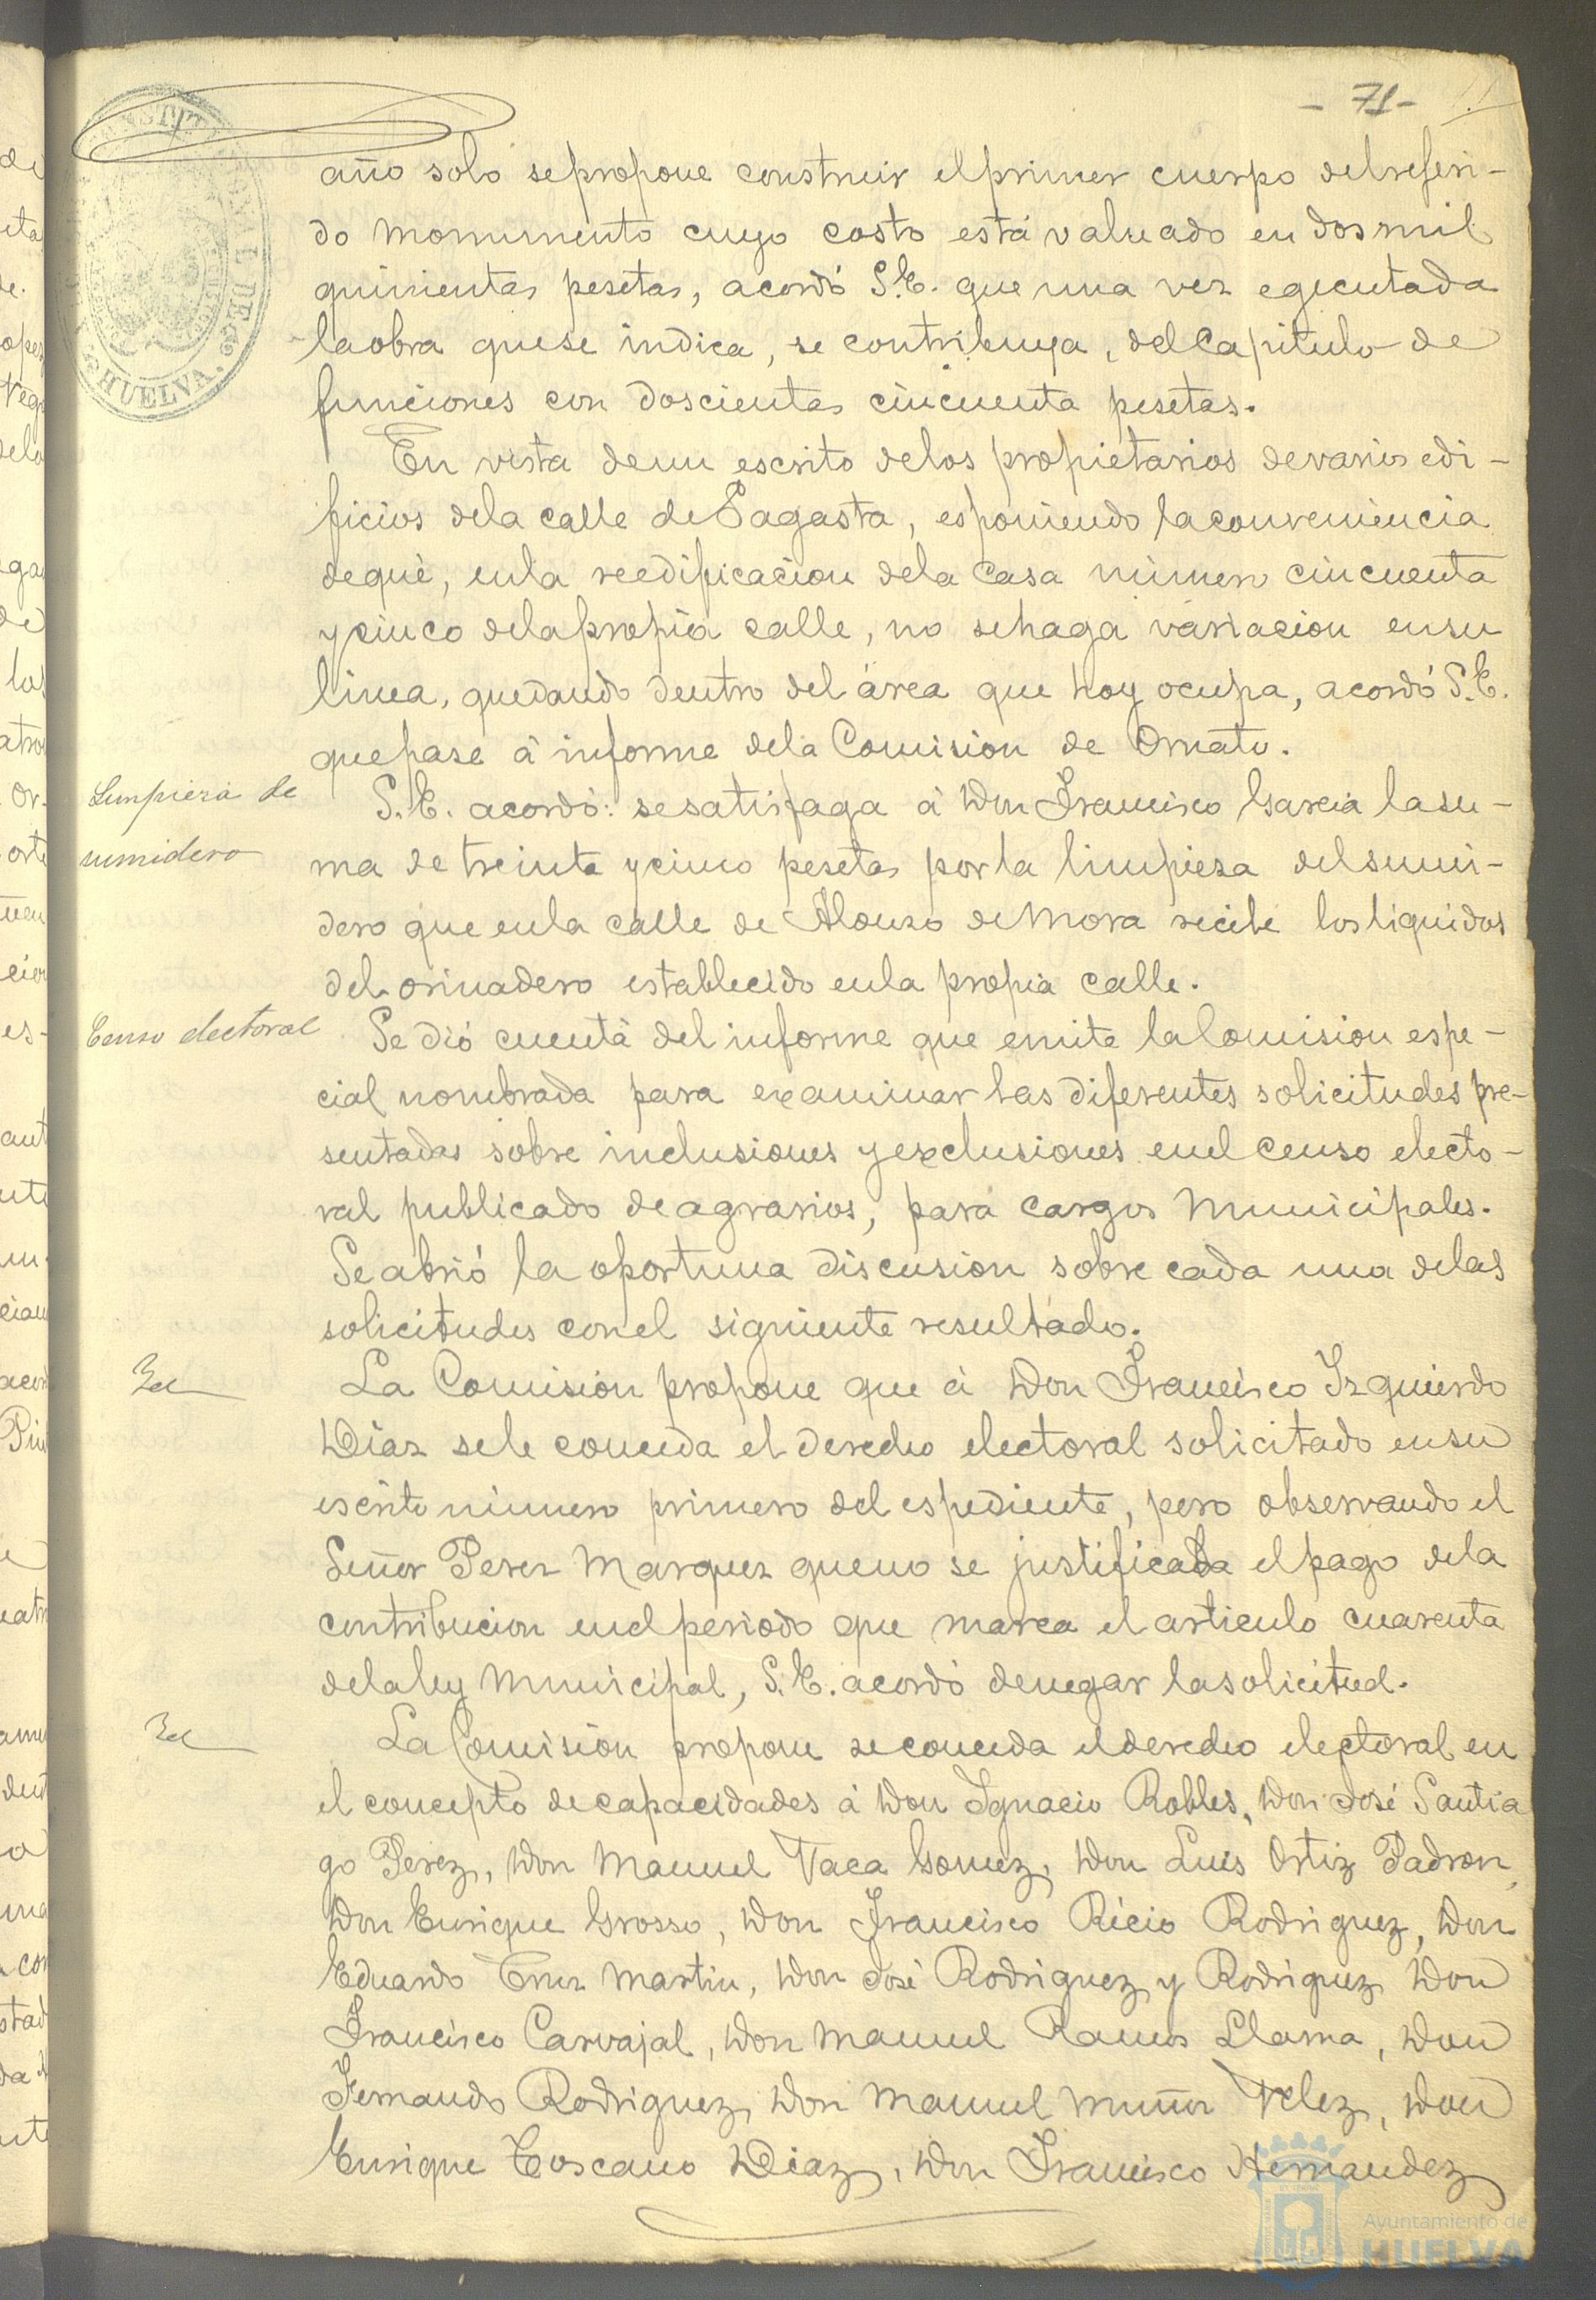 - 71 -
año solo se propone construir el primer cuerpo del referi-
do monumento cuyo costo está valuado en dos mil
quinientas pesetas, acordó S.E. que una vez egecutada
la obra que se indica, se contribuya, del Capitulo de
funciones con doscientas cincuenta pesetas.
En vista de un escrito de los propietarios de varios edi-
ficios de la calle de Sagasta, esponiendo la conveniencia
de qué, en la reedificacion de la Casa número cincuenta
y cinco de la propia calle, no se haga variacion en su
linea, quedando dentro del área que hoy ocupa, acordó S.E.
que pase á informe de la Comision de Ornato.
Limpieza de
sumidero
S.E. acordó: se satisfaga á Don Francisco Garcia la su-
ma de treinta y cinco pesetas por la limpieza del sumi-
dero que en la calle de Alonso de Mora recibe los liquidos
del orinadero establecido en la propia calle.
Censo electoral
Se dió cuenta del informe que emite la Comision espe-
cial nombrada para examinar las diferentes solicitudes pre-
sentadas sobre inclusiones y exclusiones en el censo electo-
ral publicado de agrarios, para cargos Municipales.
Se abrió la oportuna discusion sobre cada una de las
solicitudes con el siguiente resultado.
La Comision propone que á Don Francisco Izquierdo
Diaz se le conceda el derecho electoral solicitado en su
escrito número primero del espediente, pero observando el
Señor Perez Marquez que no se justificaba el pago de la
contribucion en el periodo que marca el articulo cuarenta
de la ley Municipal, S.E. acordó denegar la solicitud.
La Comision propone se conceda el derecho electoral en
el concepto de capacidades á Don Ignacio Robles, Don José Santia
go Perez, Don Manuel Vaca Gomez, Don Luis Ortiz Padron,
Don Enrique Grosso, Don Francisco Ricio Rodriguez, Don
Eduardo Cruz Martin, Don José Rodriguez y Rodriguez Don
Francisco Carvajal, Don Manuel Ramos Llama, Don
Fernando Rodriguez, Don Manuel Muñoz Velez, Don
Enrique Toscano Diaz, Don Francisco Hernandez
HUELVA.
Ayuntamiento de
HUELVA